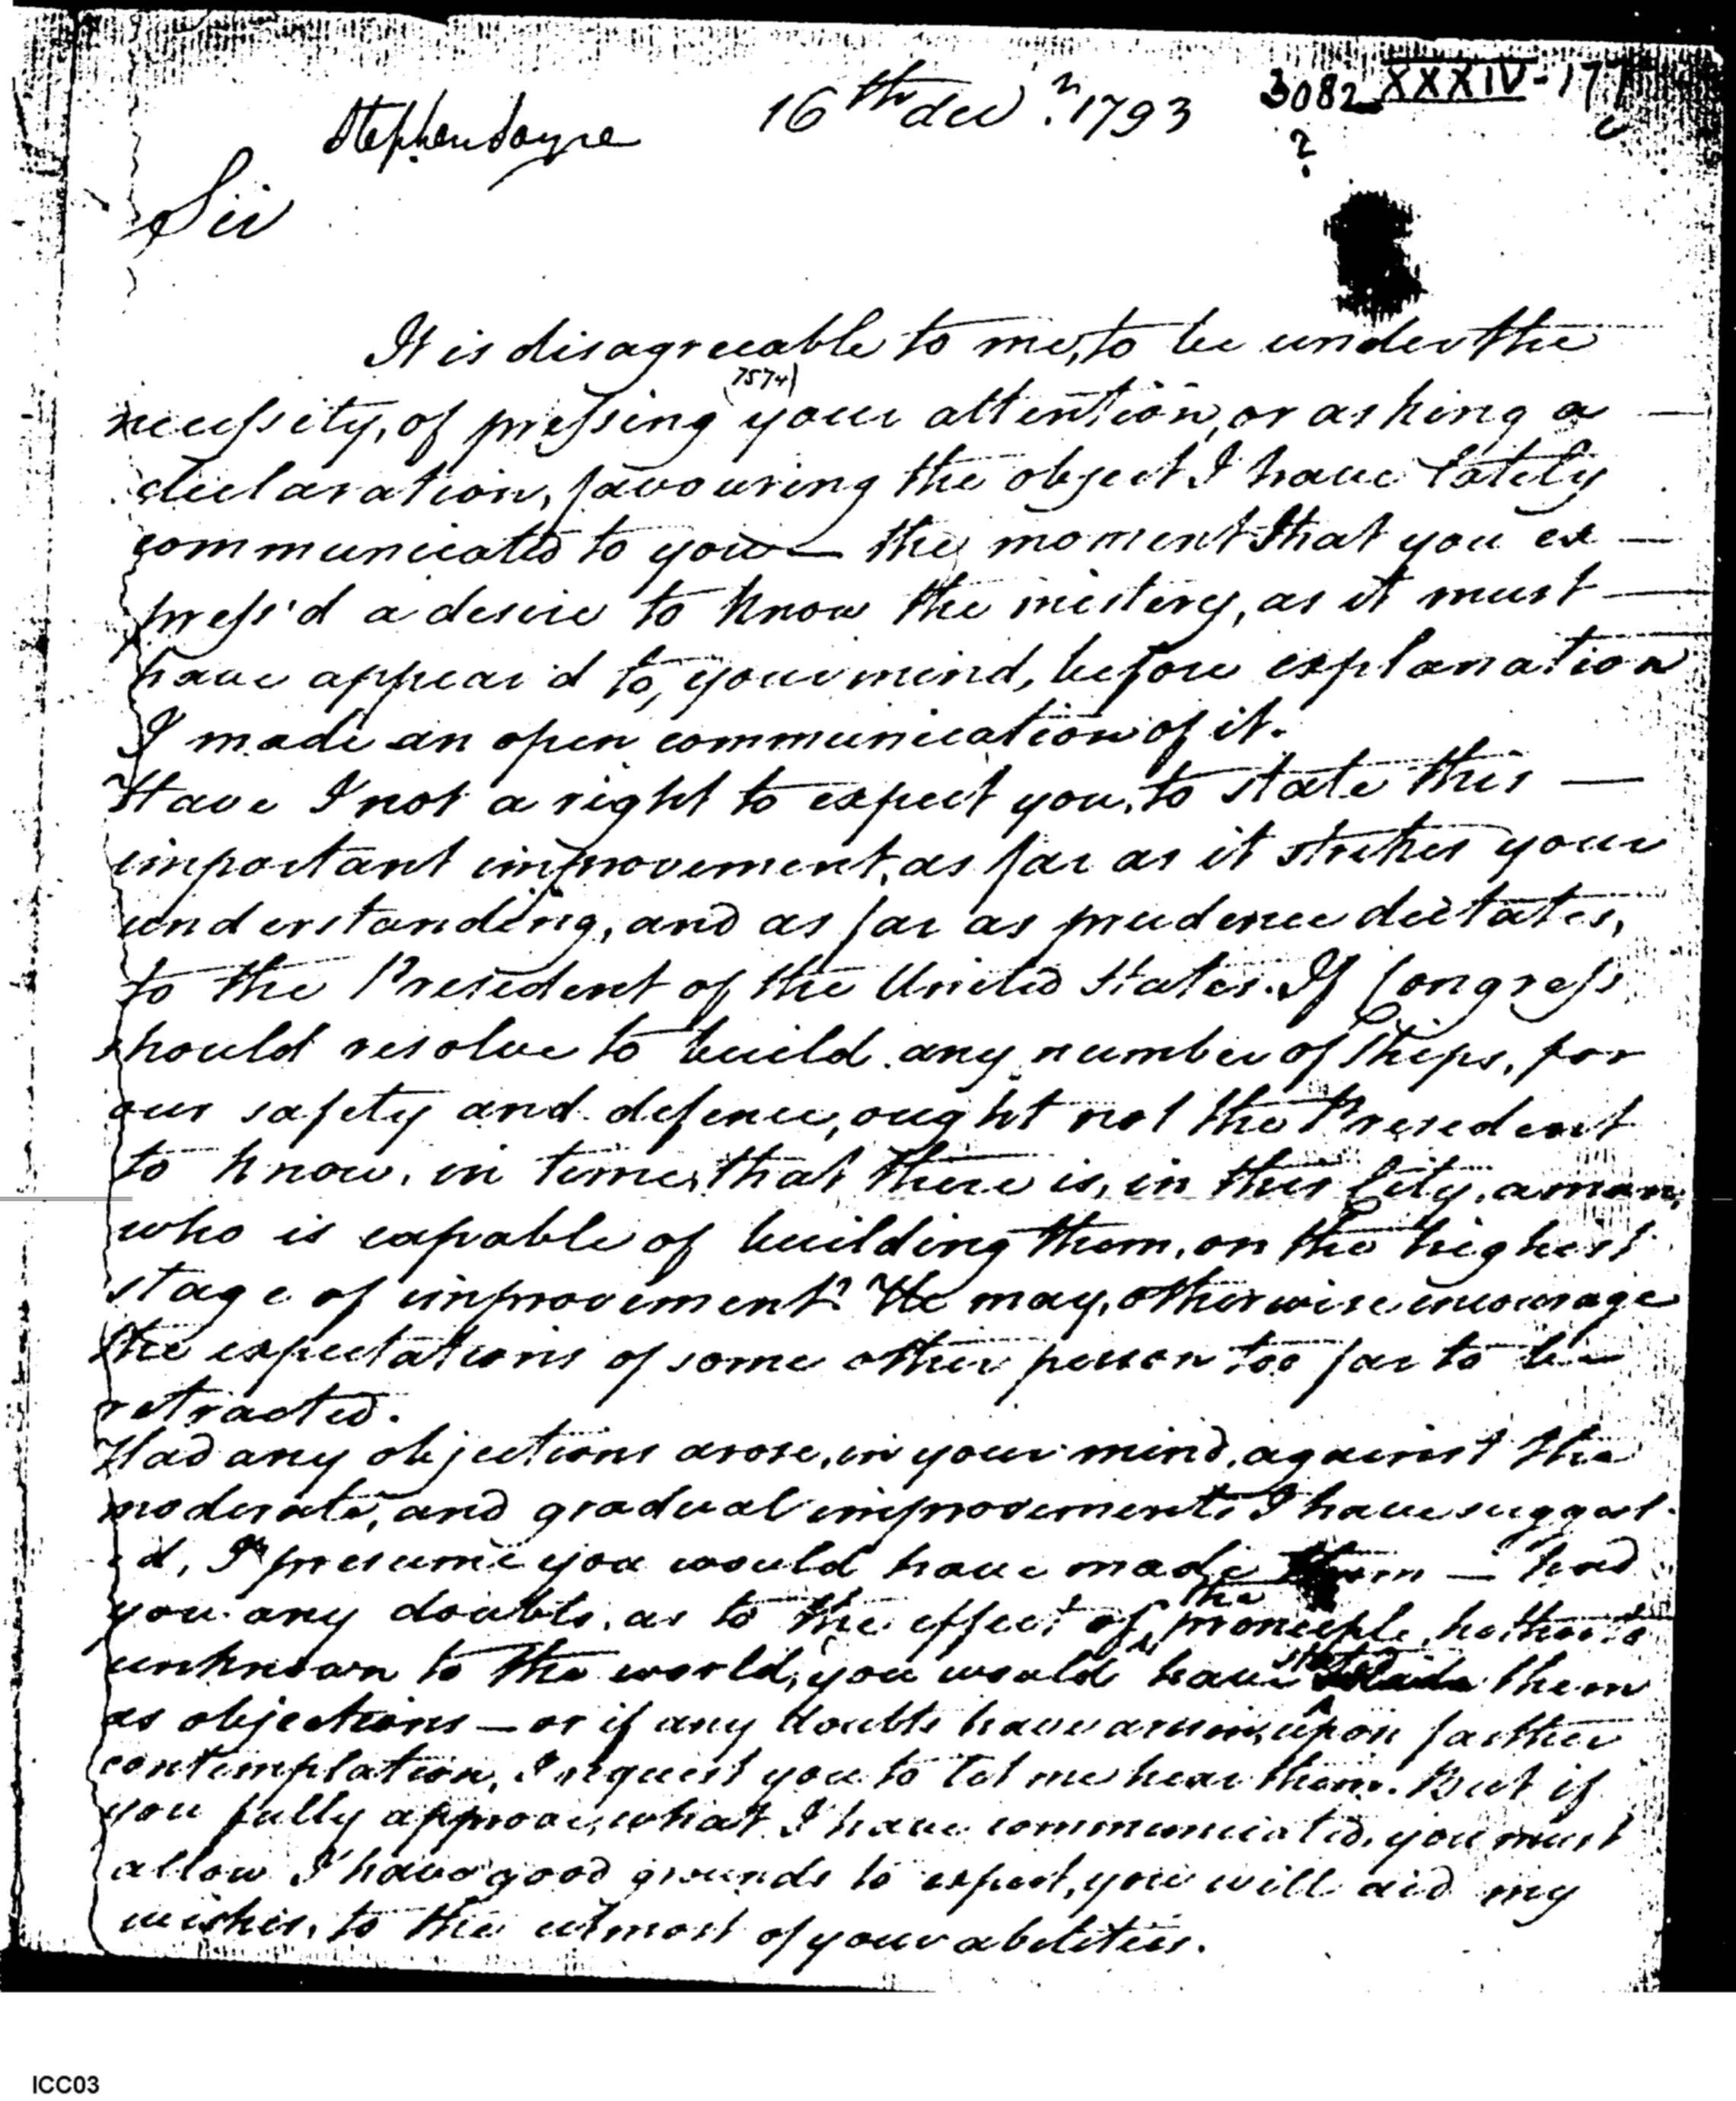 3082 XXXIV-177
Stephen Sayre 16th decr. 1793
?
Sir
It is disagreeable to me, to be under the
(7574)
necessity, of pressing your attention, or asking a —
declaration, favouring the object I have lately
communicated to you — the moment that you ex —
press'd a desire to know the mistery, as it must —
have appear'd to, your mind, before explanation
I made an open communication of it.
Have I not a right to expect you, to state this —
important improvement, as far as it strikes your
understanding, and as far as prudence dictates,
to the President of the United States. If Congress
should resolve to build any number of Ships, for
our safety and defence, ought not the President
to know, in time, that there is, in this City, a man,
who is capable of building them, on the highest
stage of improvement? He may, otherwise encourage
the expectations of some other person too far to be
retracted.
Had any objections arose, in your mind, against the
moderate, and gradual improvements I have suggest-
ed, I presume you would have made them — had
the
you any doubts, as to the effect of principle, hitherto
unknown to the world, you would have stated them
as objections — or if any doubts have arisen, upon farther
contemplation, I request you to let me hear them. But if
you fully approve, what I have communicated, you must
allow I have good grounds to expect, you will aid my
wishes, to the utmost of your abilities.
ICC03